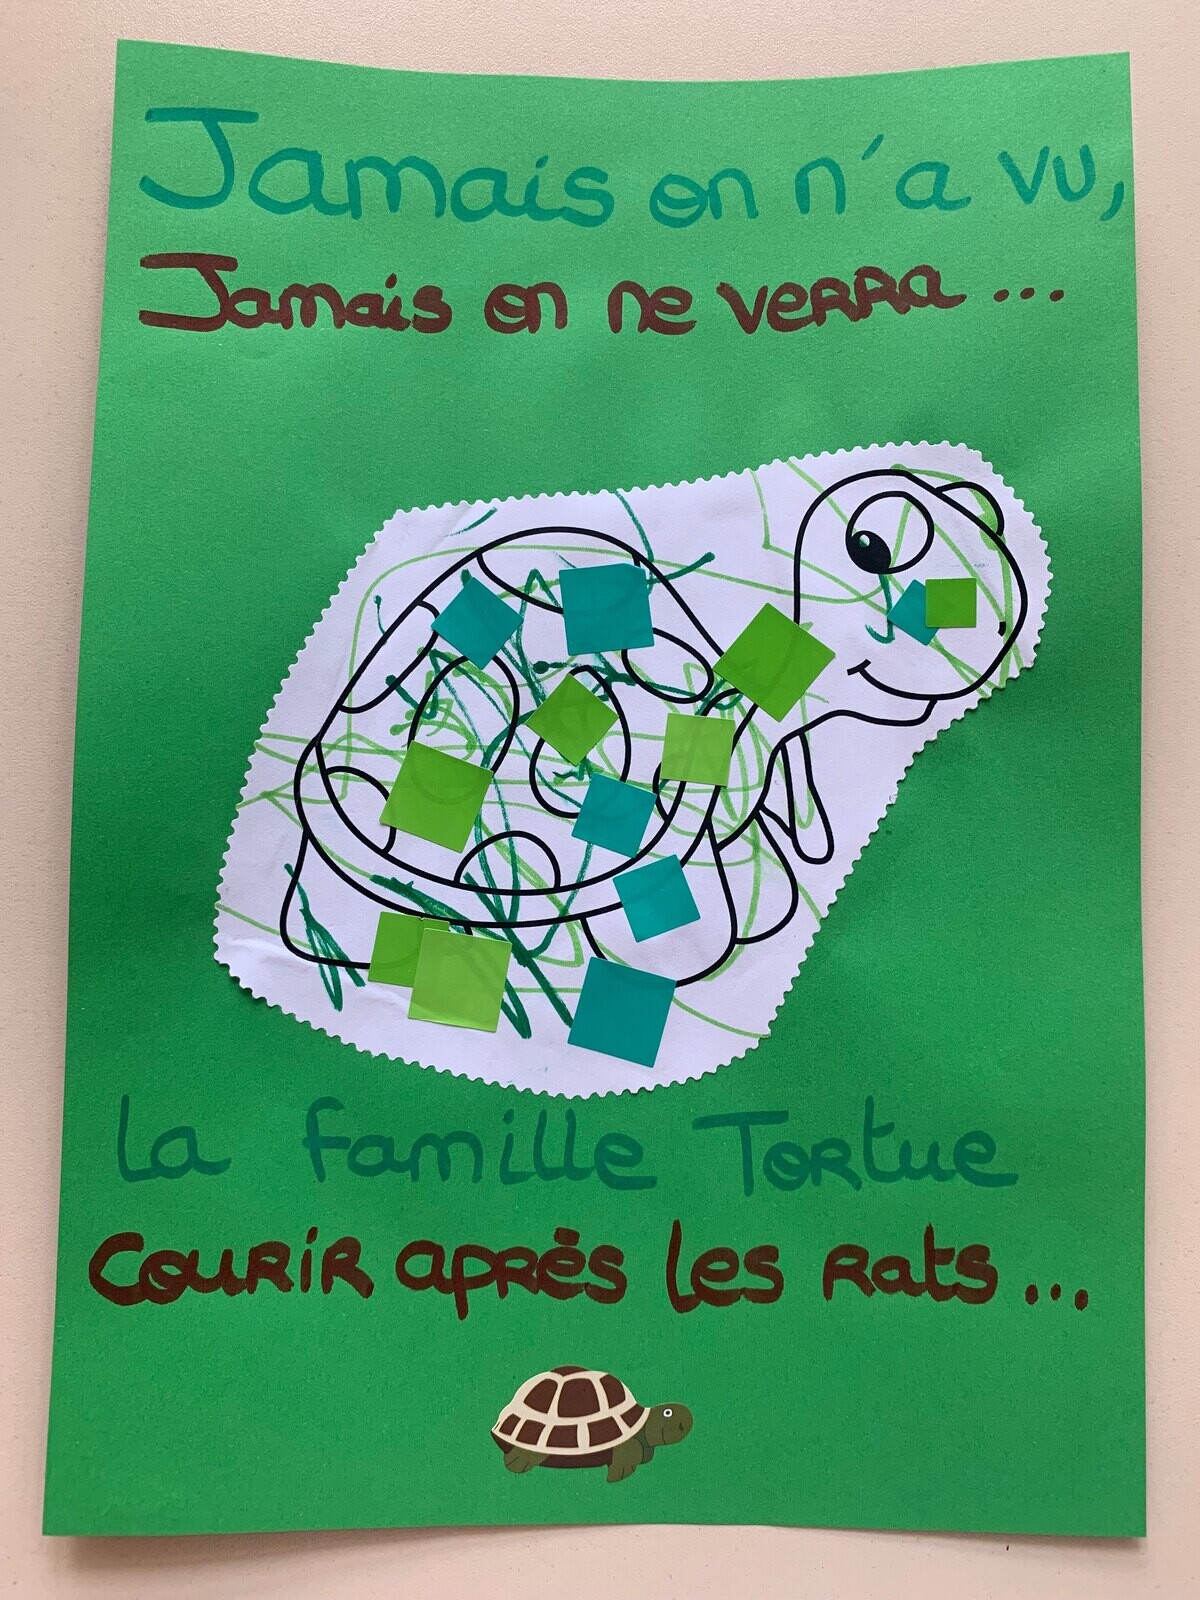 Jamais on n'a vu,
Jamais on ne verra...
La famille Tortue
Courir après les rats...